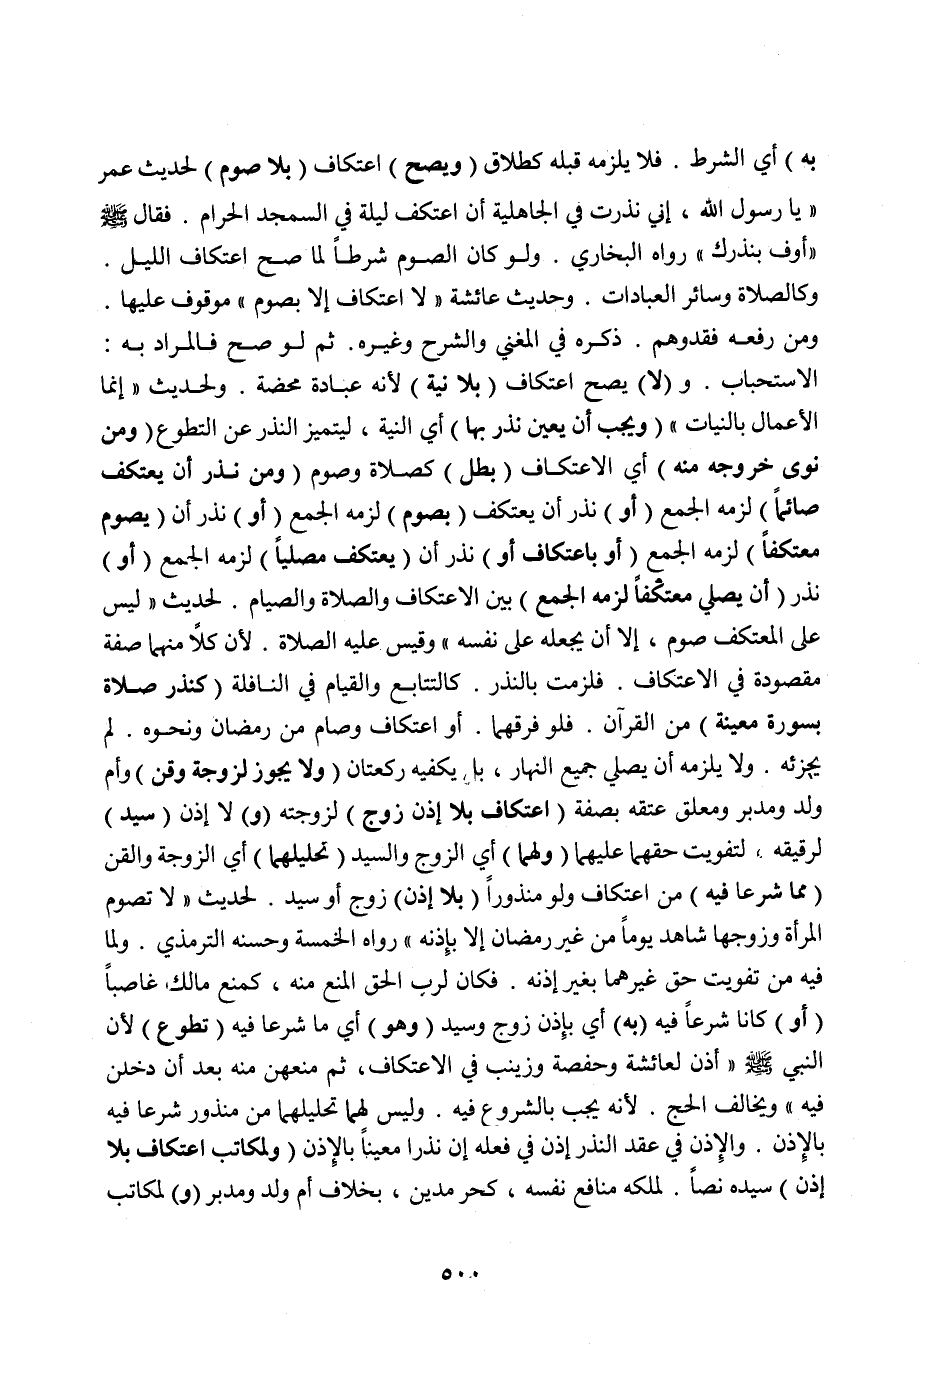 به ) أي الشرط . فلا يلزمه قبله كطلاق ( ويصح ) اعتكاف ( بلا صوم ) لحديث عمر
« يا رسول الله ، إني نذرت في الجاهلية أن اعتكف ليلة في السمجد الحرام . فقال ﷺ
«أوف بنذرك » رواه البخاري . ولو كان الصوم شرطاً لما صح اعتكاف الليل .
وكالصلاة وسائر العبادات . وحديث عائشة « لا اعتكاف إلا بصوم » موقوف عليها .
ومن رفعه فقدوهم . ذكره في المغني والشرح وغيره. ثم لو صح فالمراد به :
الاستحباب . و (لا) يصح اعتكاف ( بلا نية ) لأنه عبادة محضة . ولحديث « إنما
الأعمال بالنيات » ( ويجب أن يعين نذر بها ) أي النية ، ليتميز النذر عن التطوع ( ومن
نوى خروجه منه ) أي الاعتكاف ( بطل ) كصلاة وصوم ( ومن نذر أن يعتكف
صائماً ) لزمه الجمع ( أو ) نذر أن يعتكف ( بصوم ) لزمه الجمع ( أو ) نذر أن ( يصوم
معتكفاً ) لزمه الجمع ( أو باعتكاف أو ) نذر أن ( يعتكف مصلياً ) لزمه الجمع ( أو )
نذر ( أن يصلي معتكفاً لزمه الجمع ) بين الاعتكاف والصلاة والصيام . لحديث « ليس
على المعتكف صوم ، إلا أن يجعله على نفسه » وقيس عليه الصلاة . لأن كلاً منهما صفة
مقصودة في الاعتكاف . فلزمت بالنذر . كالتتابع والقيام في النافلة ( كنذر صلاة
بسورة معينة ) من القرآن . فلو فرقهما . أو اعتكاف وصام من رمضان ونحوه . لم
يجزئه . ولا يلزمه أن يصلي جميع النهار ، بل يكفيه ركعتان ( ولا يجوز لزوجة وقن ) وأم
ولد ومدبر ومعلق عتقه بصفة ( اعتكاف بلا إذن زوج ) لزوجته (و) لا إذن ( سيد )
لرقيقه ، لتفويت حقهما عليهما ( ولهما ) أي الزوج والسيد ( تحليلهما ) أي الزوجة والقن
( مما شرعا فيه ) من اعتكاف ولو منذوراً ( بلا إذن) زوج أو سيد . لحديث « لا تصوم
المرأة وزوجها شاهد يوماً من غير رمضان إلا بإذنه » رواه الخمسة وحسنه الترمذي . ولما
فيه من تفويت حق غيرهما بغير إذنه . فكان لرب الحق المنع منه ، كمنع مالك غاصباً
( أو ) كانا شرعاً فيه (به) أي بإذن زوج وسيد ( وهو ) أي ما شرعا فيه ( تطوع ) لأن
النبي ﷺ « أذن لعائشة وحفصة وزينب في الاعتكاف، ثم منعهن منه بعد أن دخلن
فيه » ويخالف الحج . لأنه يجب بالشروع فيه . وليس لهما تحليلهما من منذور شرعا فيه
بالإذن . والإذن في عقد النذر إذن في فعله إن نذرا معيناً بالإذن ( ولمكاتب اعتكاف بلا
إذن ) سيده نصاً . لملكه منافع نفسه ، كحر مدين ، بخلاف أم ولد ومدبر (و) لمكاتب
٥٠٠